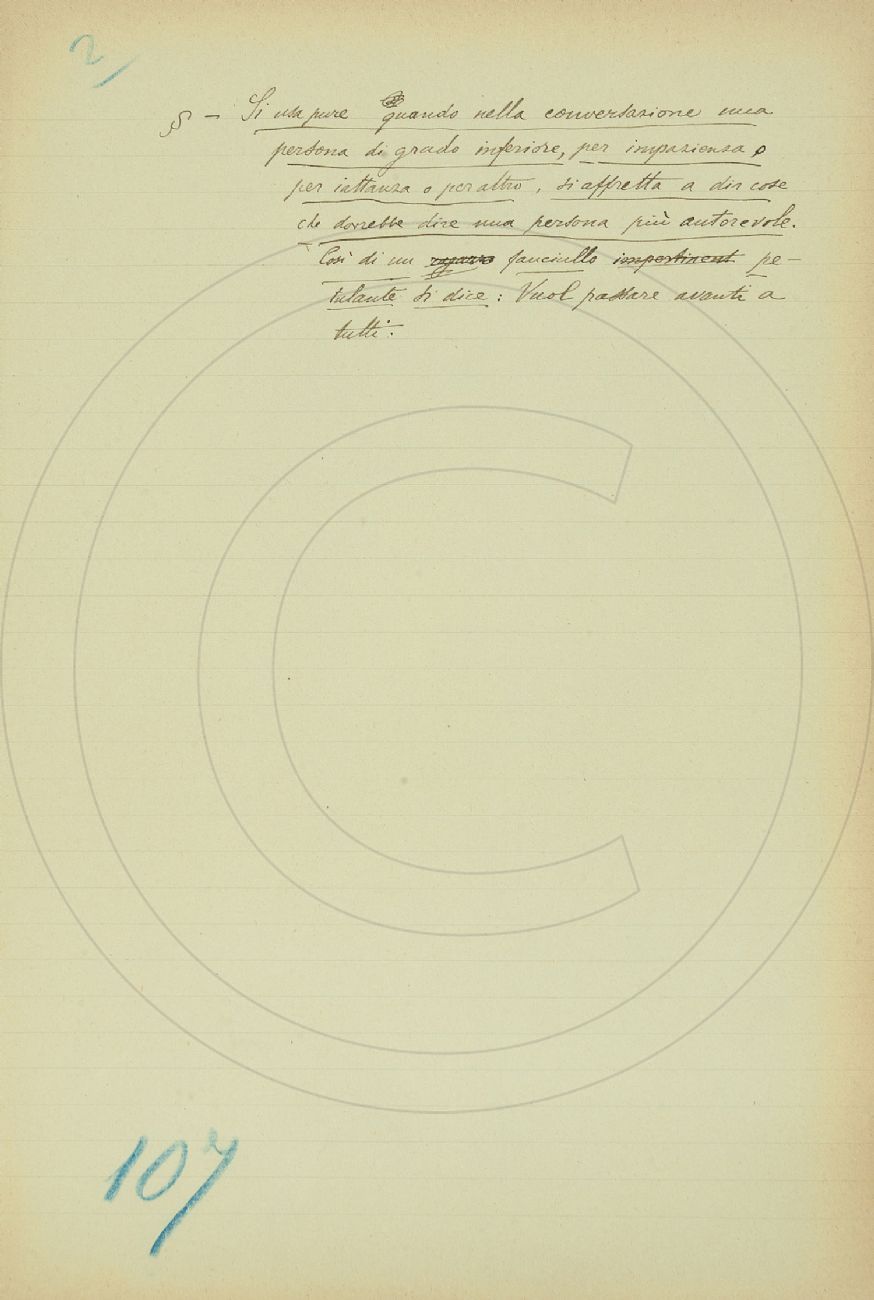 2)
§ – Si usa pure quando nella conversazione una
persona di grado inferiore, per impazienza o
per iattanza o per altro, si affretta a dir cose
che dovrebbe dire una persona più autorevole.
Così di un ragazzo fanciullo impertinent pe-
tulante si dice: Vuol passare avanti a
tutti.
107